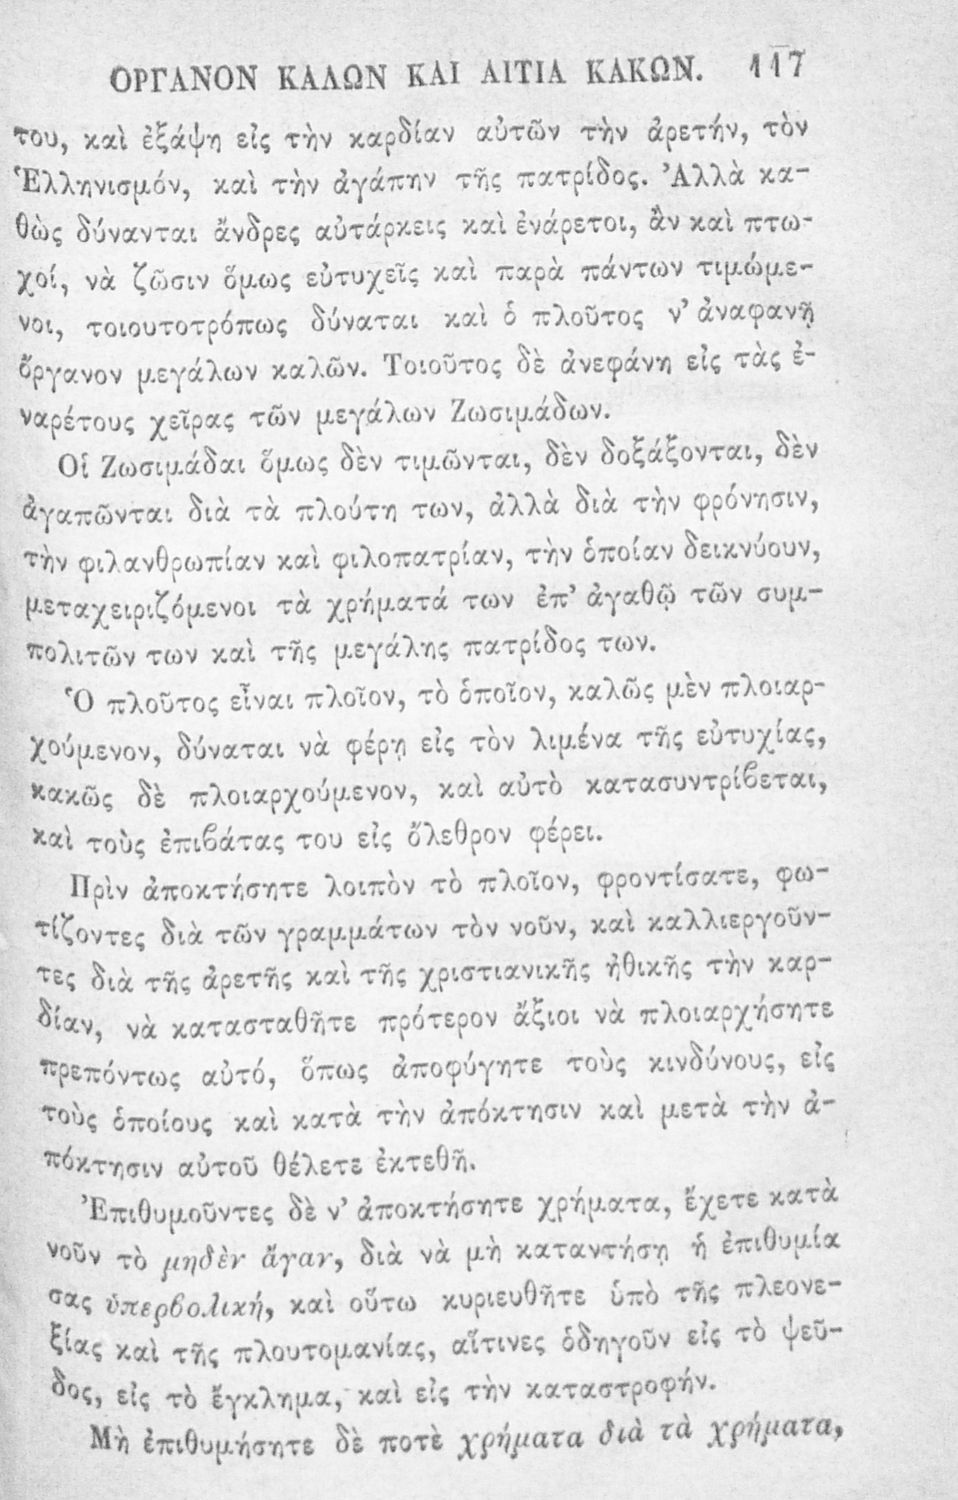 ΟΡΓΑΝΟΝ ΚΑΛΩΝ ΚΑΙ ΑΙΤΙΑ ΚΑΚΩΝ. 117
του, καὶ ἐξάψῃ εἰς τὴν καρδίαν αὐτῶν τὴν ἀρετήν, τὸν
Ἑλληνισμόν, καὶ τὴν ἀγάπην τῆς πατρίδος. Ἀλλὰ κα-
θὼς δύνανται ἄνδρες αὐτάρκεις καὶ ἐνάρετοι, ἂν καὶ πτω-
χοί, νὰ ζῶσιν ὅμως εὐτυχεῖς καὶ παρὰ πάντων τιμώμε-
νοι, τοιουτοτρόπως δύναται καὶ ὁ πλοῦτος ν’ ἀναφανῇ
ὄργανον μεγάλων καλῶν. Τοιοῦτος δὲ ἀνεφάνη εἰς τὰς ἐ-
ναρέτους χεῖρας τῶν μεγάλων Ζωσιμάδων.
Οἱ Ζωσιμάδαι ὅμως δὲν τιμῶνται, δὲν δοξάξονται, δὲν
ἀγαπῶνται διὰ τὰ πλούτη των, ἀλλὰ διὰ τὴν φρόνησιν,
τὴν φιλανθρωπίαν καὶ φιλοπατρίαν, τὴν ὁποίαν δεικνύουν,
μεταχειριζόμενοι τὰ χρήματά των ἐπ’ ἀγαθῷ τῶν συμ-
πολιτῶν των καὶ τῆς μεγάλης πατρίδος των.
Ὁ πλοῦτος εἶναι πλοῖον, τὸ ὁποῖον, καλῶς μὲν πλοιαρ-
χούμενον, δύναται νὰ φέρῃ εἰς τὸν λιμένα τῆς εὐτυχίας,
κακῶς δὲ πλοιαρχούμενον, καὶ αὐτὸ κατασυντρίβεται,
καὶ τοὺς ἐπιβάτας του εἰς ὄλεθρον φέρει.
Πρὶν ἀποκτήσητε λοιπὸν τὸ πλοῖον, φροντίσατε, φω-
τίζοντες διὰ τῶν γραμμάτων τὸν νοῦν, καὶ καλλιεργοῦν-
τες διὰ τῆς ἀρετῆς καὶ τῆς χριστιανικῆς ἠθικῆς τὴν καρ-
δίαν, νὰ κατασταθῆτε πρότερον ἄξιοι νὰ πλοιαρχήσητε
πρεπόντως αὐτό, ὅπως ἀποφύγητε τοὺς κινδύνους, εἰς
τοὺς ὁποίους καὶ κατὰ τὴν ἀπόκτησιν καὶ μετὰ τὴν ἀ-
πόκτησιν αὐτοῦ θέλετε ἐκτεθῆ.
Ἐπιθυμοῦντες δὲ ν’ ἀποκτήσητε χρήματα, ἔχετε κατὰ
νοῦν τὸ μηδὲν ἄγαν, διὰ νὰ μὴ καταντήσῃ ἡ ἐπιθυμία
σας ὑπερβολική, καὶ οὕτω κυριευθῆτε ὑπὸ τῆς πλεονε-
ξίας καὶ τῆς πλουτομανίας, αἵτινες ὁδηγοῦν εἰς τὸ ψεῦ-
δος, εἰς τὸ ἔγκλημα, καὶ εἰς τὴν καταστροφήν.
Μὴ ἐπιθυμήσητε δὲ ποτὲ χρήματα διὰ τὰ χρήματα,